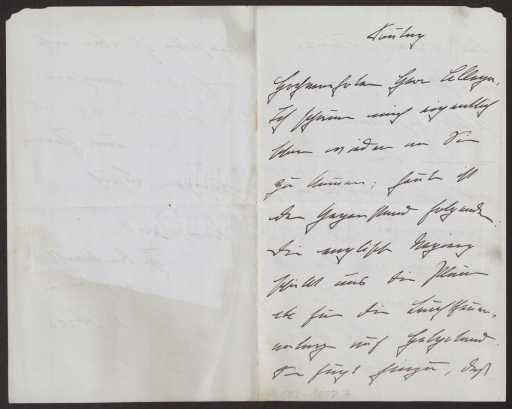 Sonntag
Hochverehrter Herr College,
Ich schäme mich eigentlich
schon wieder an Sie
zu kommen; heute ist
der Gegenstand folgender.
Die englische Regierg
schickt uns die Pläne
etc für die Leuchtthurm-
anlage auf Helgoland.
Sie fügt hinzu, daß